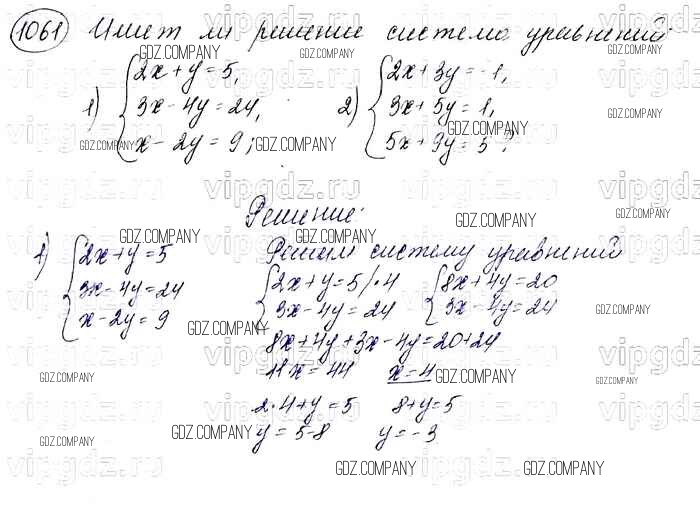 1061 Имеет ли решение система уравнений:
1) { 2x + y = 5, 3x - 4y = 24, x - 2y = 9;
2) { 2x + 3y = -1, 3x + 5y = 1, 5x + 9y = 5 ?
Решение:
1) { 2x + y = 5 3x - 4y = 24 x - 2y = 9
Решим систему уравнений
{ 2x + y = 5 /·4 3x - 4y = 24 { 8x + 4y = 20 3x - 4y = 24
8x + 4y + 3x - 4y = 20 + 24
11x = 44 x = 4
2·4 + y = 5 8 + y = 5
y = 5 - 8 y = -3
vipgdz.ru
GDZ.COMPANY